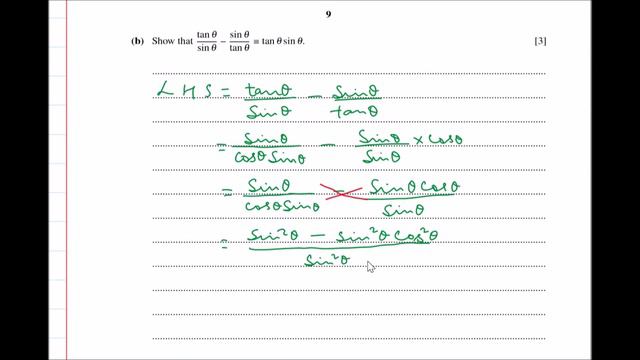 9
(b) Show that tan θ/sin θ − sin θ/tan θ = tan θ sin θ. [3]
LHS = tanθ/sinθ − sinθ/tanθ
= sinθ/cosθ sinθ − sinθ/sinθ × cosθ
= sinθ/cosθ sinθ − sinθ cosθ/sinθ
= sin²θ − sin²θ cos²θ/sin²θ